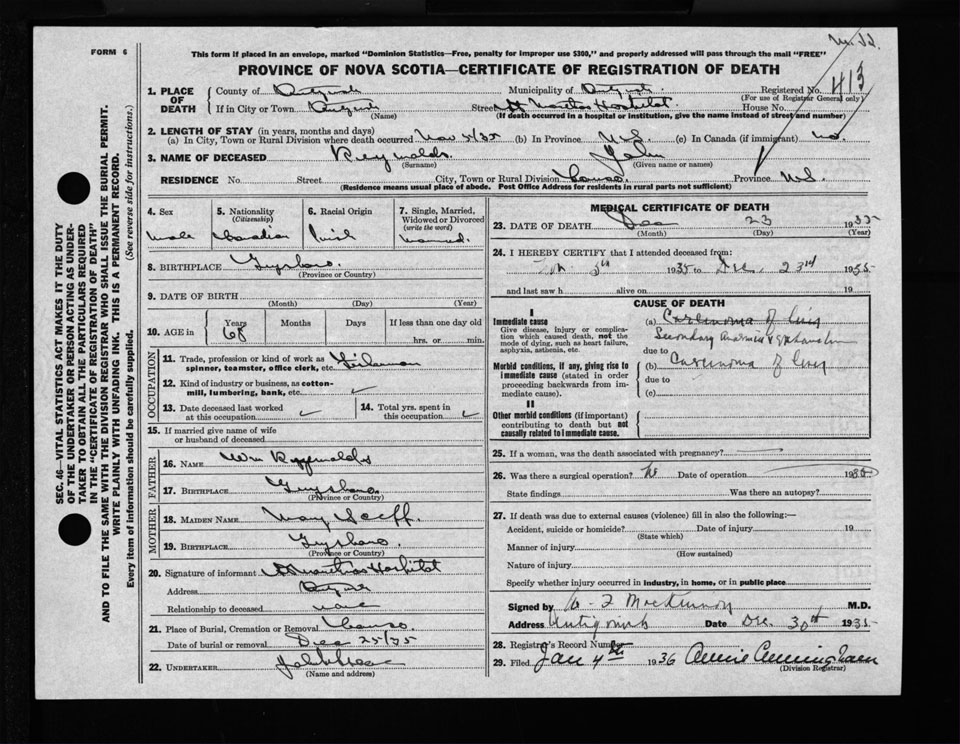 FORM 6
This form if placed in an envelope, marked "Dominion Statistics—Free, penalty for improper use $300," and properly addressed will pass through the mail "FREE"
PROVINCE OF NOVA SCOTIA—CERTIFICATE OF REGISTRATION OF DEATH
413
1. PLACE OF DEATH
County of
Municipality of
Registered No.
(For use of Registrar General only)
If in City or Town
(Name)
Street St Hospital House No.
(If death occurred in a hospital or institution, give the name instead of street and number)
2. LENGTH OF STAY (in years, months and days)
(a) In City, Town or Rural Division where death occurred Nov 5/35 (b) In Province N.S. (c) In Canada (if immigrant) no.
3. NAME OF DECEASED Reynolds. John
(Surname) (Given name or names)
RESIDENCE No. Street City, Town or Rural Division Canso. Province N.S.
(Residence means usual place of abode. Post Office Address for residents in rural parts not sufficient)
4. Sex
male
5. Nationality
(Citizenship)
Canadian
6. Racial Origin
Irish
7. Single, Married, Widowed or Divorced
(write the word)
married.
8. BIRTHPLACE Guysboro.
(Province or Country)
9. DATE OF BIRTH
(Month) (Day) (Year)
10. AGE in
Years Months Days If less than one day old
68 hrs. or min.
OCCUPATION
11. Trade, profession or kind of work as spinner, teamster, office clerk, etc.
12. Kind of industry or business, as cotton-mill, lumbering, bank, etc.
13. Date deceased last worked at this occupation
14. Total yrs. spent in this occupation
15. If married give name of wife or husband of deceased
FATHER
16. NAME Wm Reynolds
17. BIRTHPLACE Guysboro.
(Province or Country)
MOTHER
18. MAIDEN NAME May
19. BIRTHPLACE Guysboro.
(Province or Country)
20. Signature of informant St Marthas Hospital
Address
Relationship to deceased none
21. Place of Burial, Cremation or Removal Canso.
Date of burial or removal Dec 25/35
22. UNDERTAKER
(Name and address)
MEDICAL CERTIFICATE OF DEATH
23. DATE OF DEATH Dec 23 1935
(Month) (Day) (Year)
24. I HEREBY CERTIFY that I attended deceased from:
5th 1935 to Dec. 23rd 1935
and last saw h alive on 19
CAUSE OF DEATH
I
Immediate cause
Give disease, injury or complication which caused death, not the mode of dying, such as heart failure, asphyxia, asthenia, etc.
(a) Carcinoma of
Secondary
due to
Morbid conditions, if any, giving rise to immediate cause (stated in order proceeding backwards from immediate cause).
(b) Carcinoma of
due to
(c)
II
Other morbid conditions (if important) contributing to death but not causally related to immediate cause.
25. If a woman, was the death associated with pregnancy?
26. Was there a surgical operation? No Date of operation 1935
State findings Was there an autopsy?
27. If death was due to external causes (violence) fill in also the following:—
Accident, suicide or homicide? Date of injury 19
(State which)
Manner of injury
(How sustained)
Nature of injury
Specify whether injury occurred in industry, in home, or in public place
Signed by MacKinnon M.D.
Address Antigonish Date Dec. 30th 1935
28. Registrar's Record Number
29. Filed Jan 4th 1936 Annie Cunningham
(Division Registrar)
SEC. 46—VITAL STATISTICS ACT MAKES IT THE DUTY
OF THE UNDERTAKER OR PERSON ACTING AS UNDERTAKER TO OBTAIN ALL THE PARTICULARS REQUIRED
IN THE "CERTIFICATE OF REGISTRATION OF DEATH"
AND TO FILE THE SAME WITH THE DIVISION REGISTRAR WHO SHALL ISSUE THE BURIAL PERMIT.
WRITE PLAINLY WITH UNFADING INK. THIS IS A PERMANENT RECORD.
Every item of information should be carefully supplied. (See reverse side for instructions.)